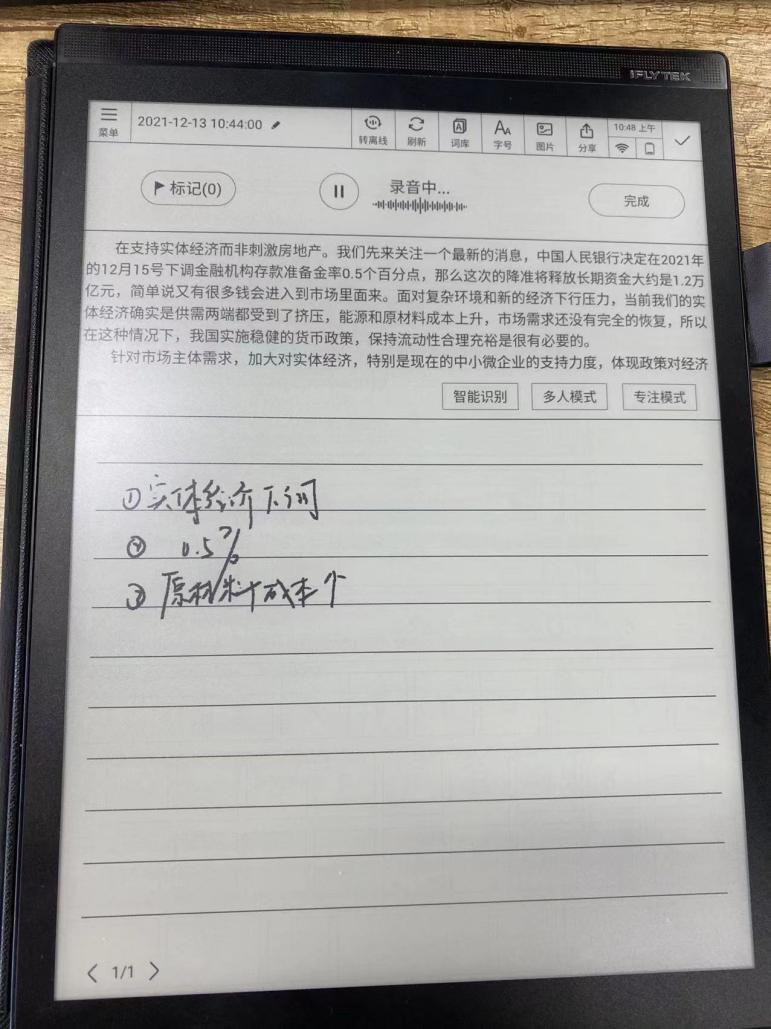 IFLYTEK
菜单
2021-12-13 10:44:00
转离线
刷新
词库
字号
图片
分享
10:48 上午
标记(0)
录音中...
完成
在支持实体经济而非刺激房地产。我们先来关注一个最新的消息，中国人民银行决定在2021年
的12月15号下调金融机构存款准备金率0.5个百分点，那么这次的降准将释放长期资金大约是1.2万
亿元，简单说又有很多钱会进入到市场里面来。面对复杂环境和新的经济下行压力，当前我们的实
体经济确实是供需两端都受到了挤压，能源和原材料成本上升，市场需求还没有完全的恢复，所以
在这种情况下，我国实施稳健的货币政策，保持流动性合理充裕是很有必要的。
针对市场主体需求，加大对实体经济，特别是现在的中小微企业的支持力度，体现政策对经济
智能识别
多人模式
专注模式
①实体经济下调
② 0.5%
③ 原材料成本个
1/1